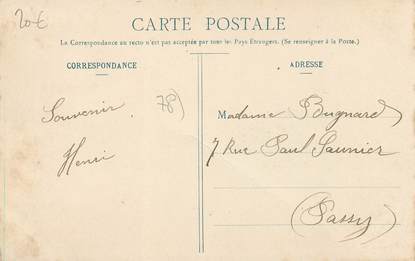 20€
CARTE POSTALE
La Correspondance au recto n'est pas acceptée par tous les Pays Étrangers. (Se renseigner à la Poste.)
CORRESPONDANCE
ADRESSE
Souvenir
78)
Henri
Madame Bugnard
7 Rue Paul Saunier
(Passy)